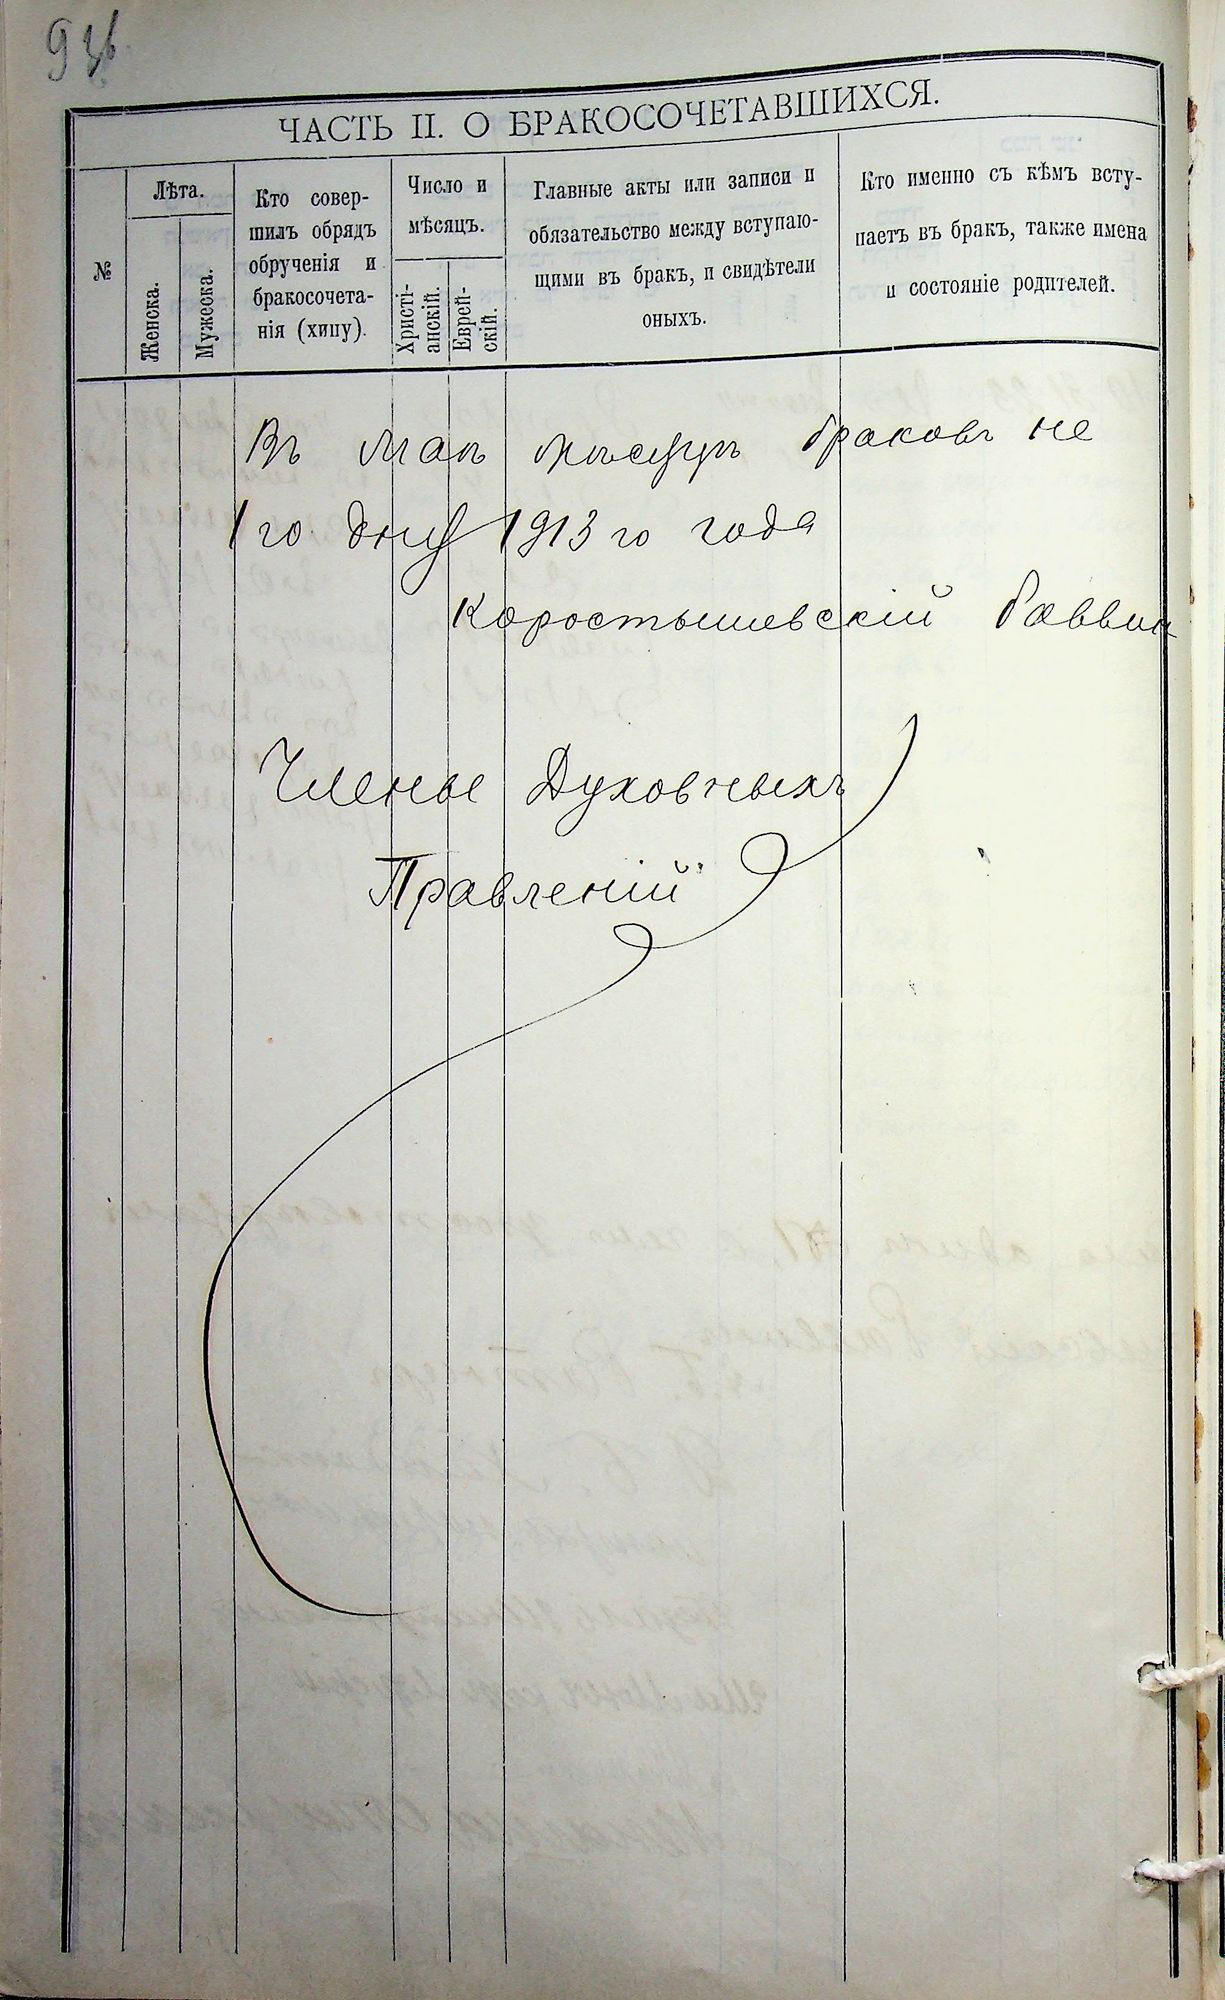 ЧАСТЬ II. О БРАКОСОЧЕТАВШИХСЯ.
№
Лѣта.
Женска.
Мужеска.
Кто совер-
шилъ обрядъ
обрученія и
бракосочета-
нія (хипу).
Число и
мѣсяцъ.
Христі-
анскій.
Еврей-
скій.
Главные акты или записи и
обязательство между вступаю-
щими въ бракъ, и свидѣтели
оныхъ.
Кто именно съ кѣмъ всту-
паетъ въ бракъ, также имена
и состояніе родителей.
Въ маѣ мѣсяцѣ браковъ не
1го дня 1913 го года
Коростышевскій Раввин
Члены Духовныхъ
Правленій